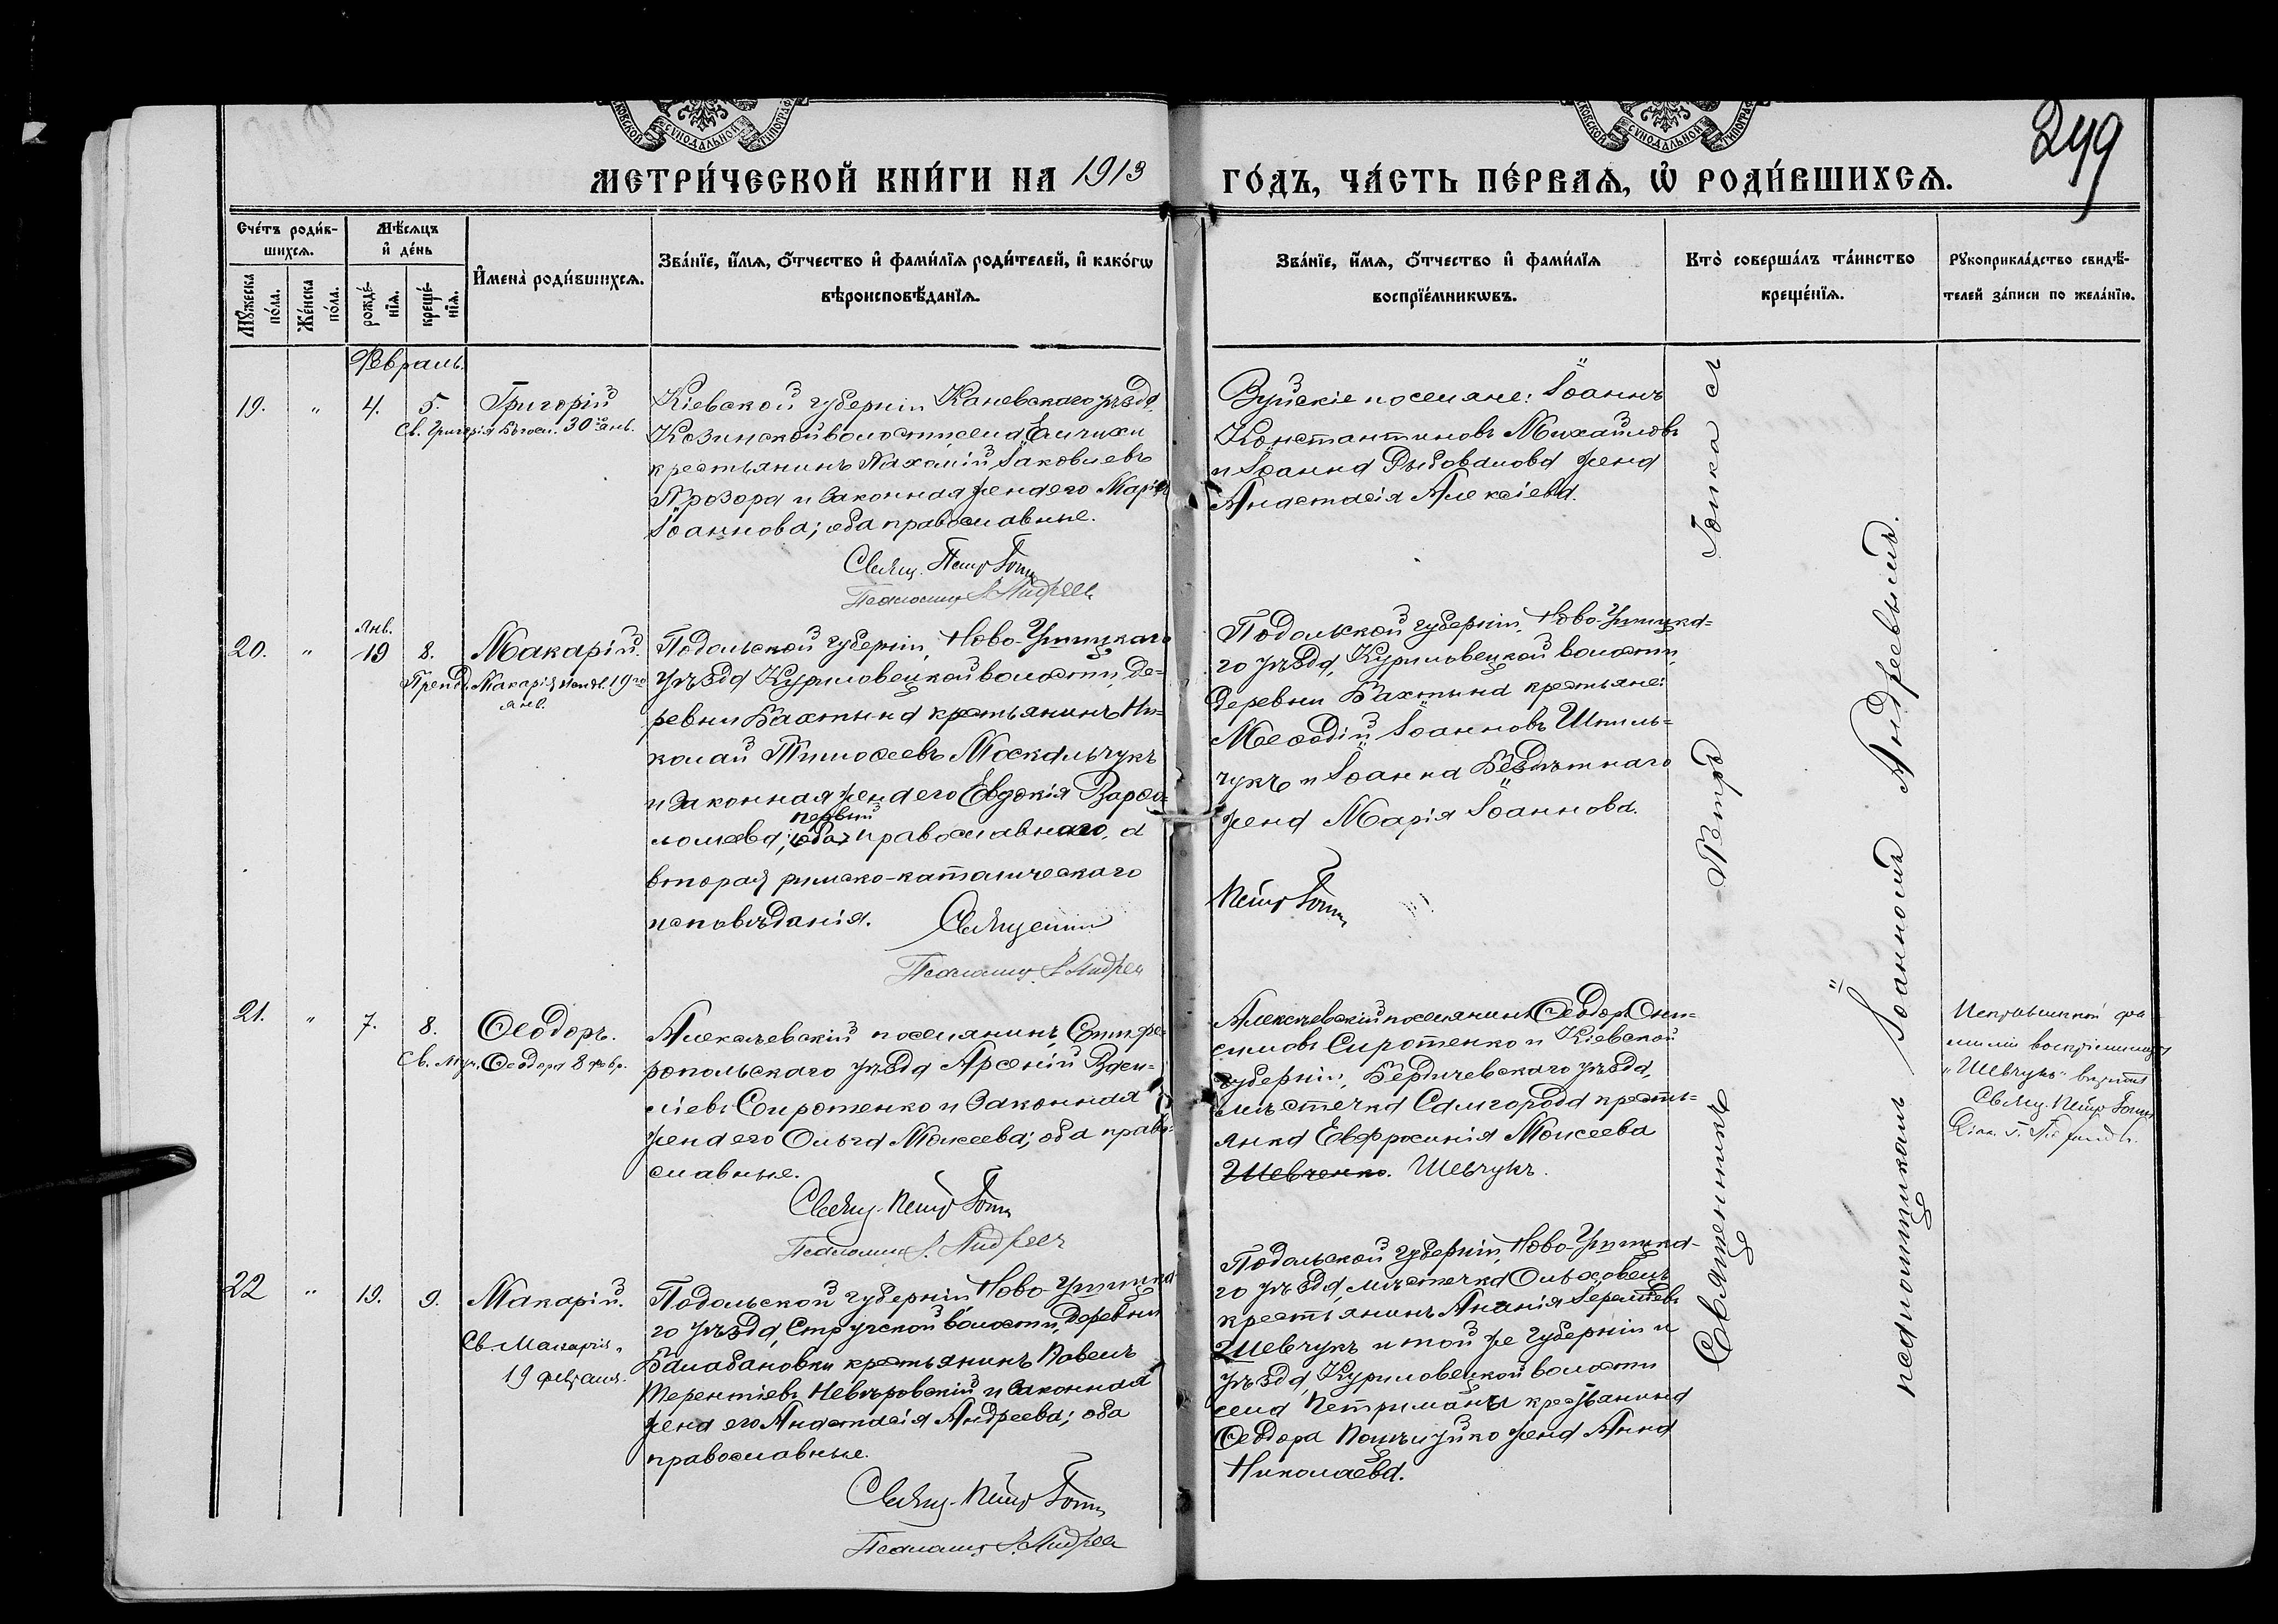 МОСКОВСКОЙ СУНОДАЛЬНОЙ ТИПОГРАФ
КОВСКОЙ СУНОДАЛЬНОЙ ТИПОГРАФ
249
МЕТРИ́ЧЕСКОЙ КНИ́ГИ НА 1913
ГО́ДЪ, ЧА́СТЬ ПЕ́РВАѦ, Ѡ҆ РОДИ́ВШИХСѦ.
Сче́тъ роди́в-
шихсѧ.
Мꙋжеска по́ла.
Же́нска по́ла.
Мѣ́сѧцъ
и҆ де́нь
рожде́-
нїѧ.
креще́-
нїѧ.
И҆мена̀ роди́вшихсѧ.
Зва́нїе, и҆́мѧ, ѻ҆́тчество и҆ фами́лїѧ роди́телей, и҆ како́гѡ
вѣроисповѣ́данїѧ.
Зва́нїе, и҆́мѧ, ѻ҆́тчество и҆ фами́лїѧ
воспрїе́мникѡвъ.
Кто̀ соверша́лъ та́инство
креще́нїѧ.
Рꙋкоприкла́дство свидѣ́-
телей за́писи по жела́нїю.
Февраль.
19. " 4. 5. Григорій
Св. Григорія Богосл. 30 янв.
Кіевской губерніи Каневскаго уѣзда,
Козинской волости села Емчихи
крестьянинъ Пахомій Іаковлевъ
Прозора и законная жена его Марія
Іоаннова; оба православные.
Свящ. Петр
Псаломщ. І. Андреев
Вуйскіе поселяне: Іоаннъ
Константиновъ Михайловъ
и Іоанна Рыбовалова жена
Анастасія Алексіева.
янв.
20. " 19 8. Макарій.
Препод. Макарія 19го
янв.
Подольской губерніи, Ново-Ушицкаго
уѣзда Куриловецкой волости, де-
ревни Бахтына крестьянинъ Ни-
колай Тимоѳеевъ Москальчукъ
и законная жена его Евдокія Варѳо-
первый
ломеева; оба православнаго, а
вторая римско-католическаго
исповѣданія. Священник
Псаломщ. І. Андрев
Подольской губерніи, Ново-Ушицка-
го уѣзда, Куриловецкой волости,
деревни Бахтына крестьяне:
Меѳодій Іоанновъ Шпиль-
чукъ и Іоанна Бездѣтнаго
жена Марія Іоаннова.
Петр
21. " 7. 8. Ѳеодоръ.
Св. муч. Ѳеодора 8 февр.
Алексѣевскій поселянинъ, Симфе-
ропольскаго уѣзда Арсеній Васи-
ліевъ Сиротенко и законная
жена его Ольга Моисеева; оба право-
славные.
Свящ. Петр
Псаломщ. І. Андреев
Алексѣевскій поселянинъ Ѳеодоръ Они-
симовъ Сиротенко и Кіевской
губерніи, Бердичевскаго уѣзда,
мѣстечка Самгородa кресть-
янка Евфросинія Моисеева
Шевченко. Шевчукъ.
Исправленной фа
миліи воспріемницы
"Шевчукъ" вѣрить
Свящ. Петр
22 " 19. 9. Макарій.
Св. Макарія,
19 февраля.
Подольской губерніи Ново-Ушицка-
го уѣзда, Стругской волости, деревни
Балабановки крестьянинъ Павелъ
Терентіевъ Невѣровскій и законная
жена его Анастасія Андреева; оба
православные.
Свящ. Петр
Псаломщ. І. Андреев
Подольской губерніи, Ново-Ушицка-
го уѣзда, мѣстечка Ольховецъ
крестьянинъ Ананія
Шевчукъ и той же губерніи и
уѣзда, Куриловецкой волости
села Петриманы крестьянина
Ѳеодора жена Анна
Николаева.
Священникъ Петръ съ
псаломщикомъ Іоанномъ Андреевымъ.